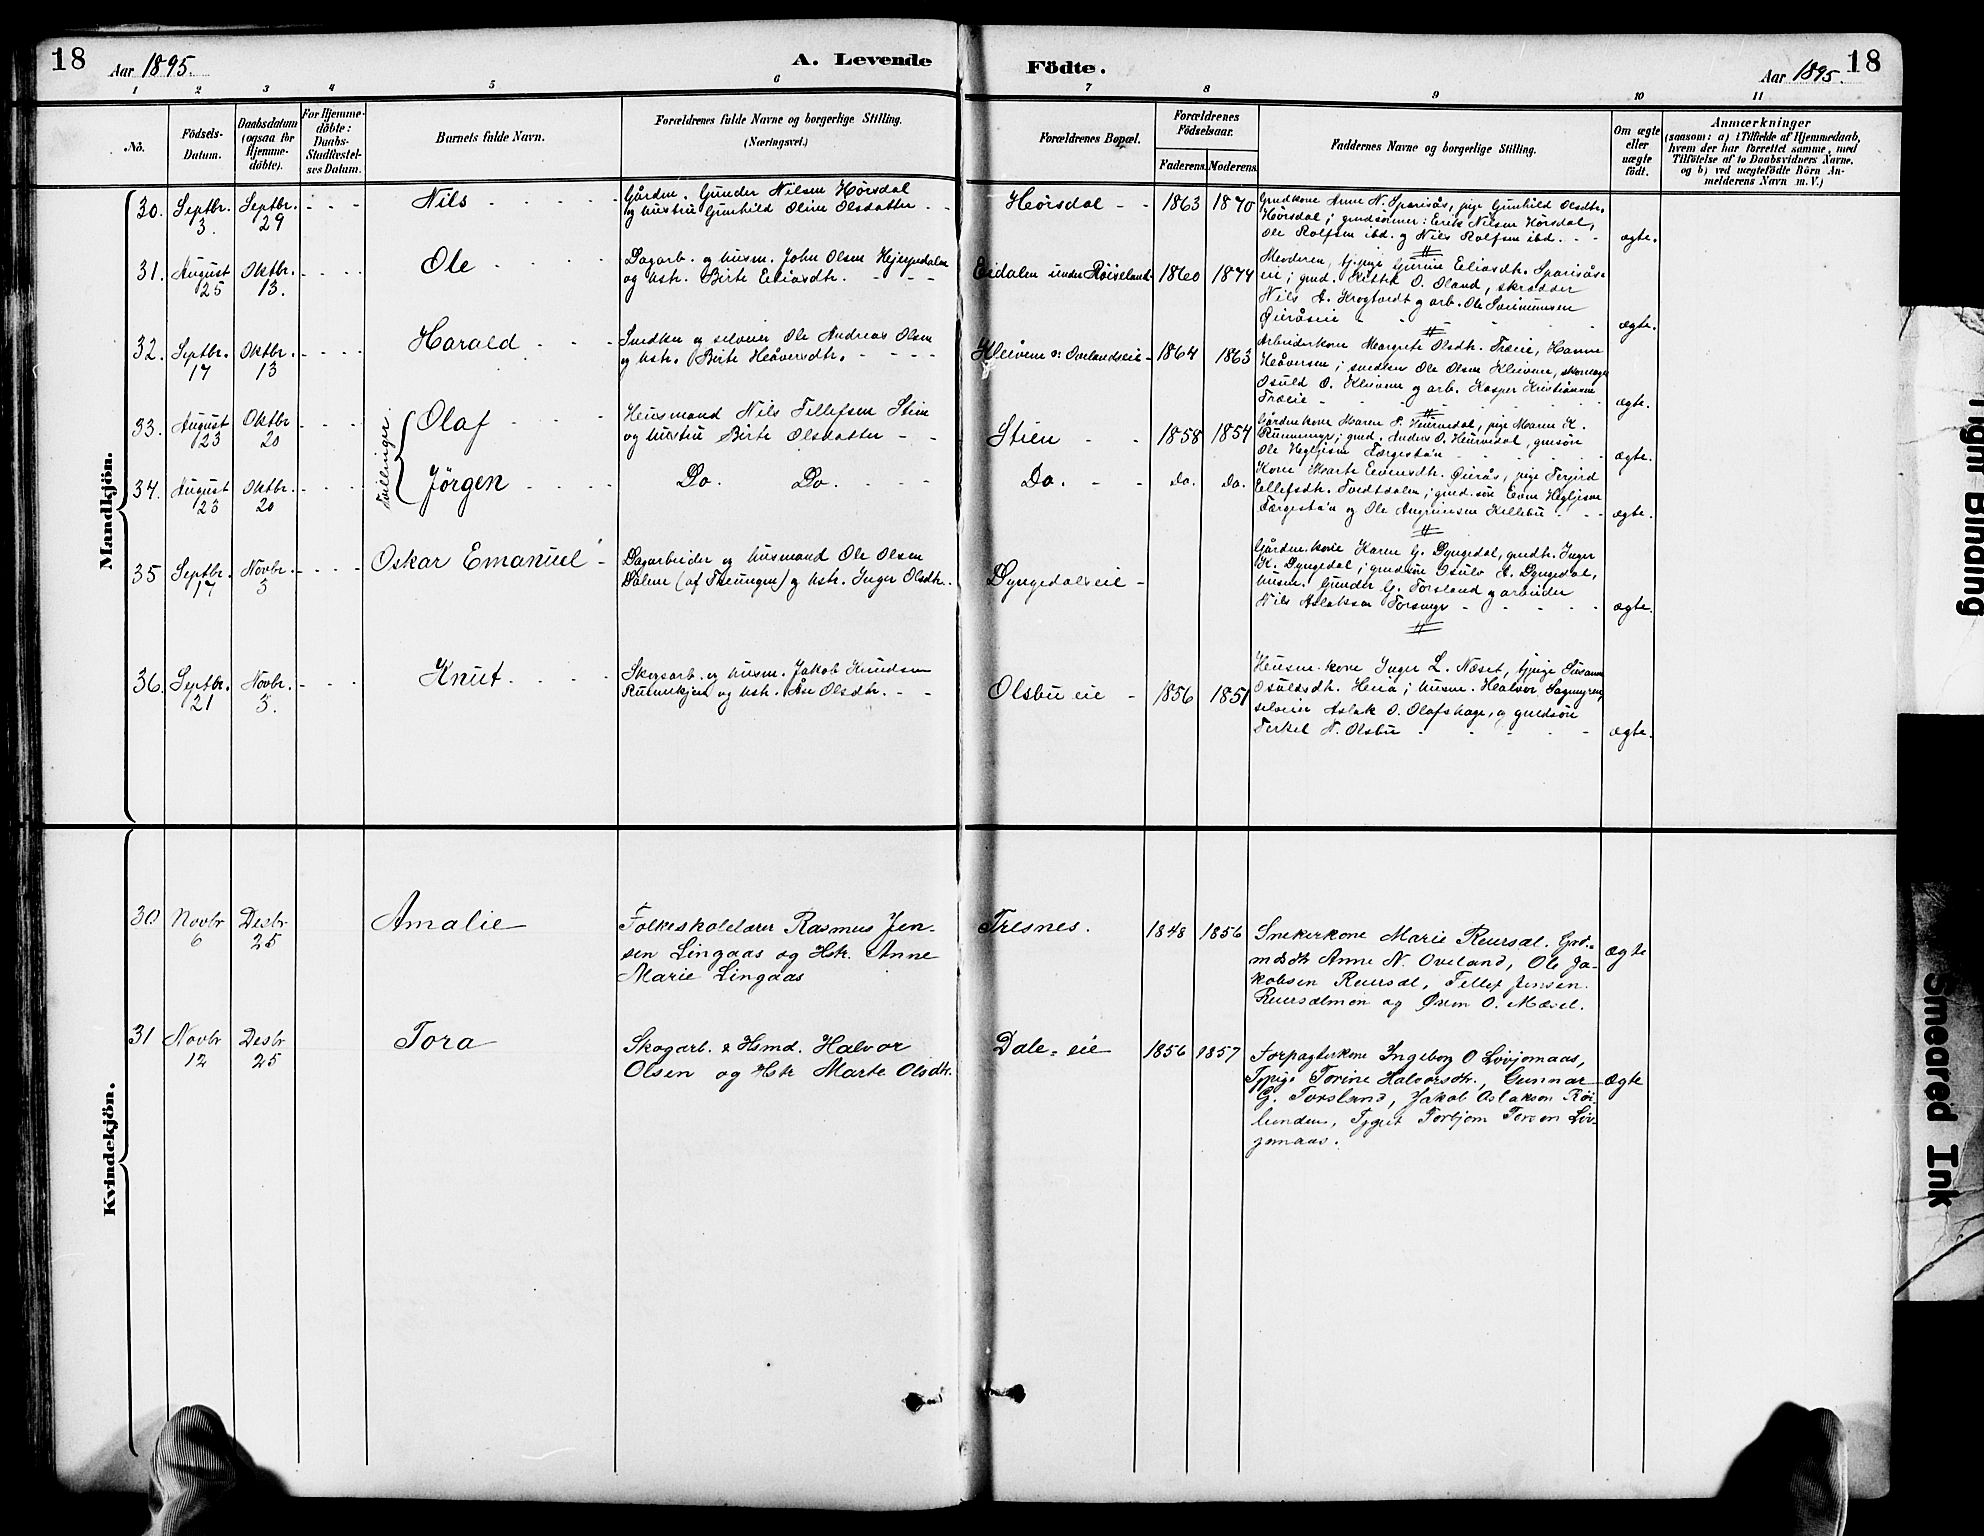 18
Aar 1895.
A. Levende
Födte.
Aar 1895.
18
1 2 3 4 5 6 7 8 9 10 11
No.
Födsels-
Datum.
Daabsdatum
(ogsaa for
Hjemme-
döbte).
For Hjemme-
döbte:
Daabs-
Stadfæstel-
ses Datum.
Barnets fulde Navn.
Forældrenes fulde Navne og borgerlige Stilling.
(Næringsvei.)
Forældrenes Bopæl.
Forældrenes
Födselsaar.
Faderens.
Moderens.
Faddernes Navne og borgerlige Stilling.
Om ægte
eller
uægte
födt.
Anmærkninger
(saasom: a) i Tilfælde af Hjemmedaab,
hvem der har forrettet samme, med
Tilföielse af to Daabsvidners Navne.
og b) ved uægtefödte Börn An-
melderens Navn m. V.)
Mandkjön.
30. Septbr. 3. Septbr. 29
Nils
Gårdm. Gunder Nilsen Hørsdal
og hustru Gunhild Oline Olsdatter
Hørsdal 1863 1870
Grudkone Anne N. Sparsås, pige Gunhild Olsdtr.
Hørsdal; grudsønner: Erik Nilsen Hørsdal,
Ole Rolfsen ibd. og Nils Rolfsen ibd.
ægte.
31. August 25 Oktbr. 13.
Ole
Dagarb. og husm. John Olsen
og hstr. Birte Eliasdtr.
Eidalen under Røiseland 1860 1874
Moderen, tj.pige Gurine Eliasdtr. Sparsås-
eie; grud. O. Oland, skrædder
Nils A. Krogtvedt og arb. Ole
ægte.
32. Septbr. 17 Oktbr. 13
Harald
Smedken og selveier Ole Andreas Olsen
og hstr. Birte Håversdtr.
Kleivene o: Ovelandseie 1864 1863
Arbeiderkone Margrete Olsdtr. Træeie, Hanne
Håversen; smedken Ole Olsen Kleivene,
Osuld O. Kleivene og arb. Kasper Kristiansen
Træeie
ægte.
Tvillinger
33. August 23 Oktbr 20
Olaf
Husmand Nils Tellefsen Stien
og hustru Birte Olsdatter
Stien 1858 1854
Gårdm.kone Maren P. pige Maren K.
grud. Anders O. grudsøn
Ole
ægte.
34. August 23 Oktbr. 20
Jørgen
Do. Do.
Do. do. do.
Kone Marte
Ellefsdtr. Tvedtdalen; grud.søn Even
og Ole
ægte.
35 Septbr. 17 Novbr. 3
Oskar Emanuel
Dagarbeider og husmand Ole Olsen
Dalene (af Treungen) og hstr. Inger Olsdtr.
Dyngedalseie
Gårdm.kone Karen G. Dyngedal, grudtr. Inger
K. Dyngedal; grudsøn Osulv A. Dyngedal,
husm. Gunder G. Forsland og arbeider
Nils Aslaksen Forsmyr
ægte.
36. Septbr. 21 Novbr. 3.
Knut
Skogsarb. og husm. Jakob Knudsen
og hstr. Åse Olsdtr.
Olsbu eie 1856 1851
Husm.kone Inger L. Næset, tj.pige Susanne
Osuldsdtr. husm. Halvor Sagmyren,
selveier Aslak O. Olafshage, og grudsøn
Terkel N. Olsbu
ægte.
Kvindekjön.
30 Novbr 6 Desbr 25
Amalie
Folkeskolelærer Rasmus Jen-
sen Lingaas og Hstr. Anne
Marie Lingaas
Tresnes. 1848 1856
Snekerkone Marie Reirsdl. Grd.-
mdsdtr Anne N. Oveland, Ole Ja-
kobsen Reirsdl, Tellef Jensen
Reirsdalmoen og Øren O. Mæsel.
ægte
31 Novbr 12 Desbr 25
Tora
Skogarb. & Hsmd. Halvor
Olsen og Hstr Marte Olsdtr.
Dale-eie 1856 1857
Forpagterkone Ingeborg O Løvjomaas,
Tjpige Torine Halvorsdtr., Gunnar
G. Forsland, Jakob Aslaksen Røi-
lunden, Tjgut Torbjørn Tersen Løv-
jomaas.
ægte
Tight Binding
Smeared Ink